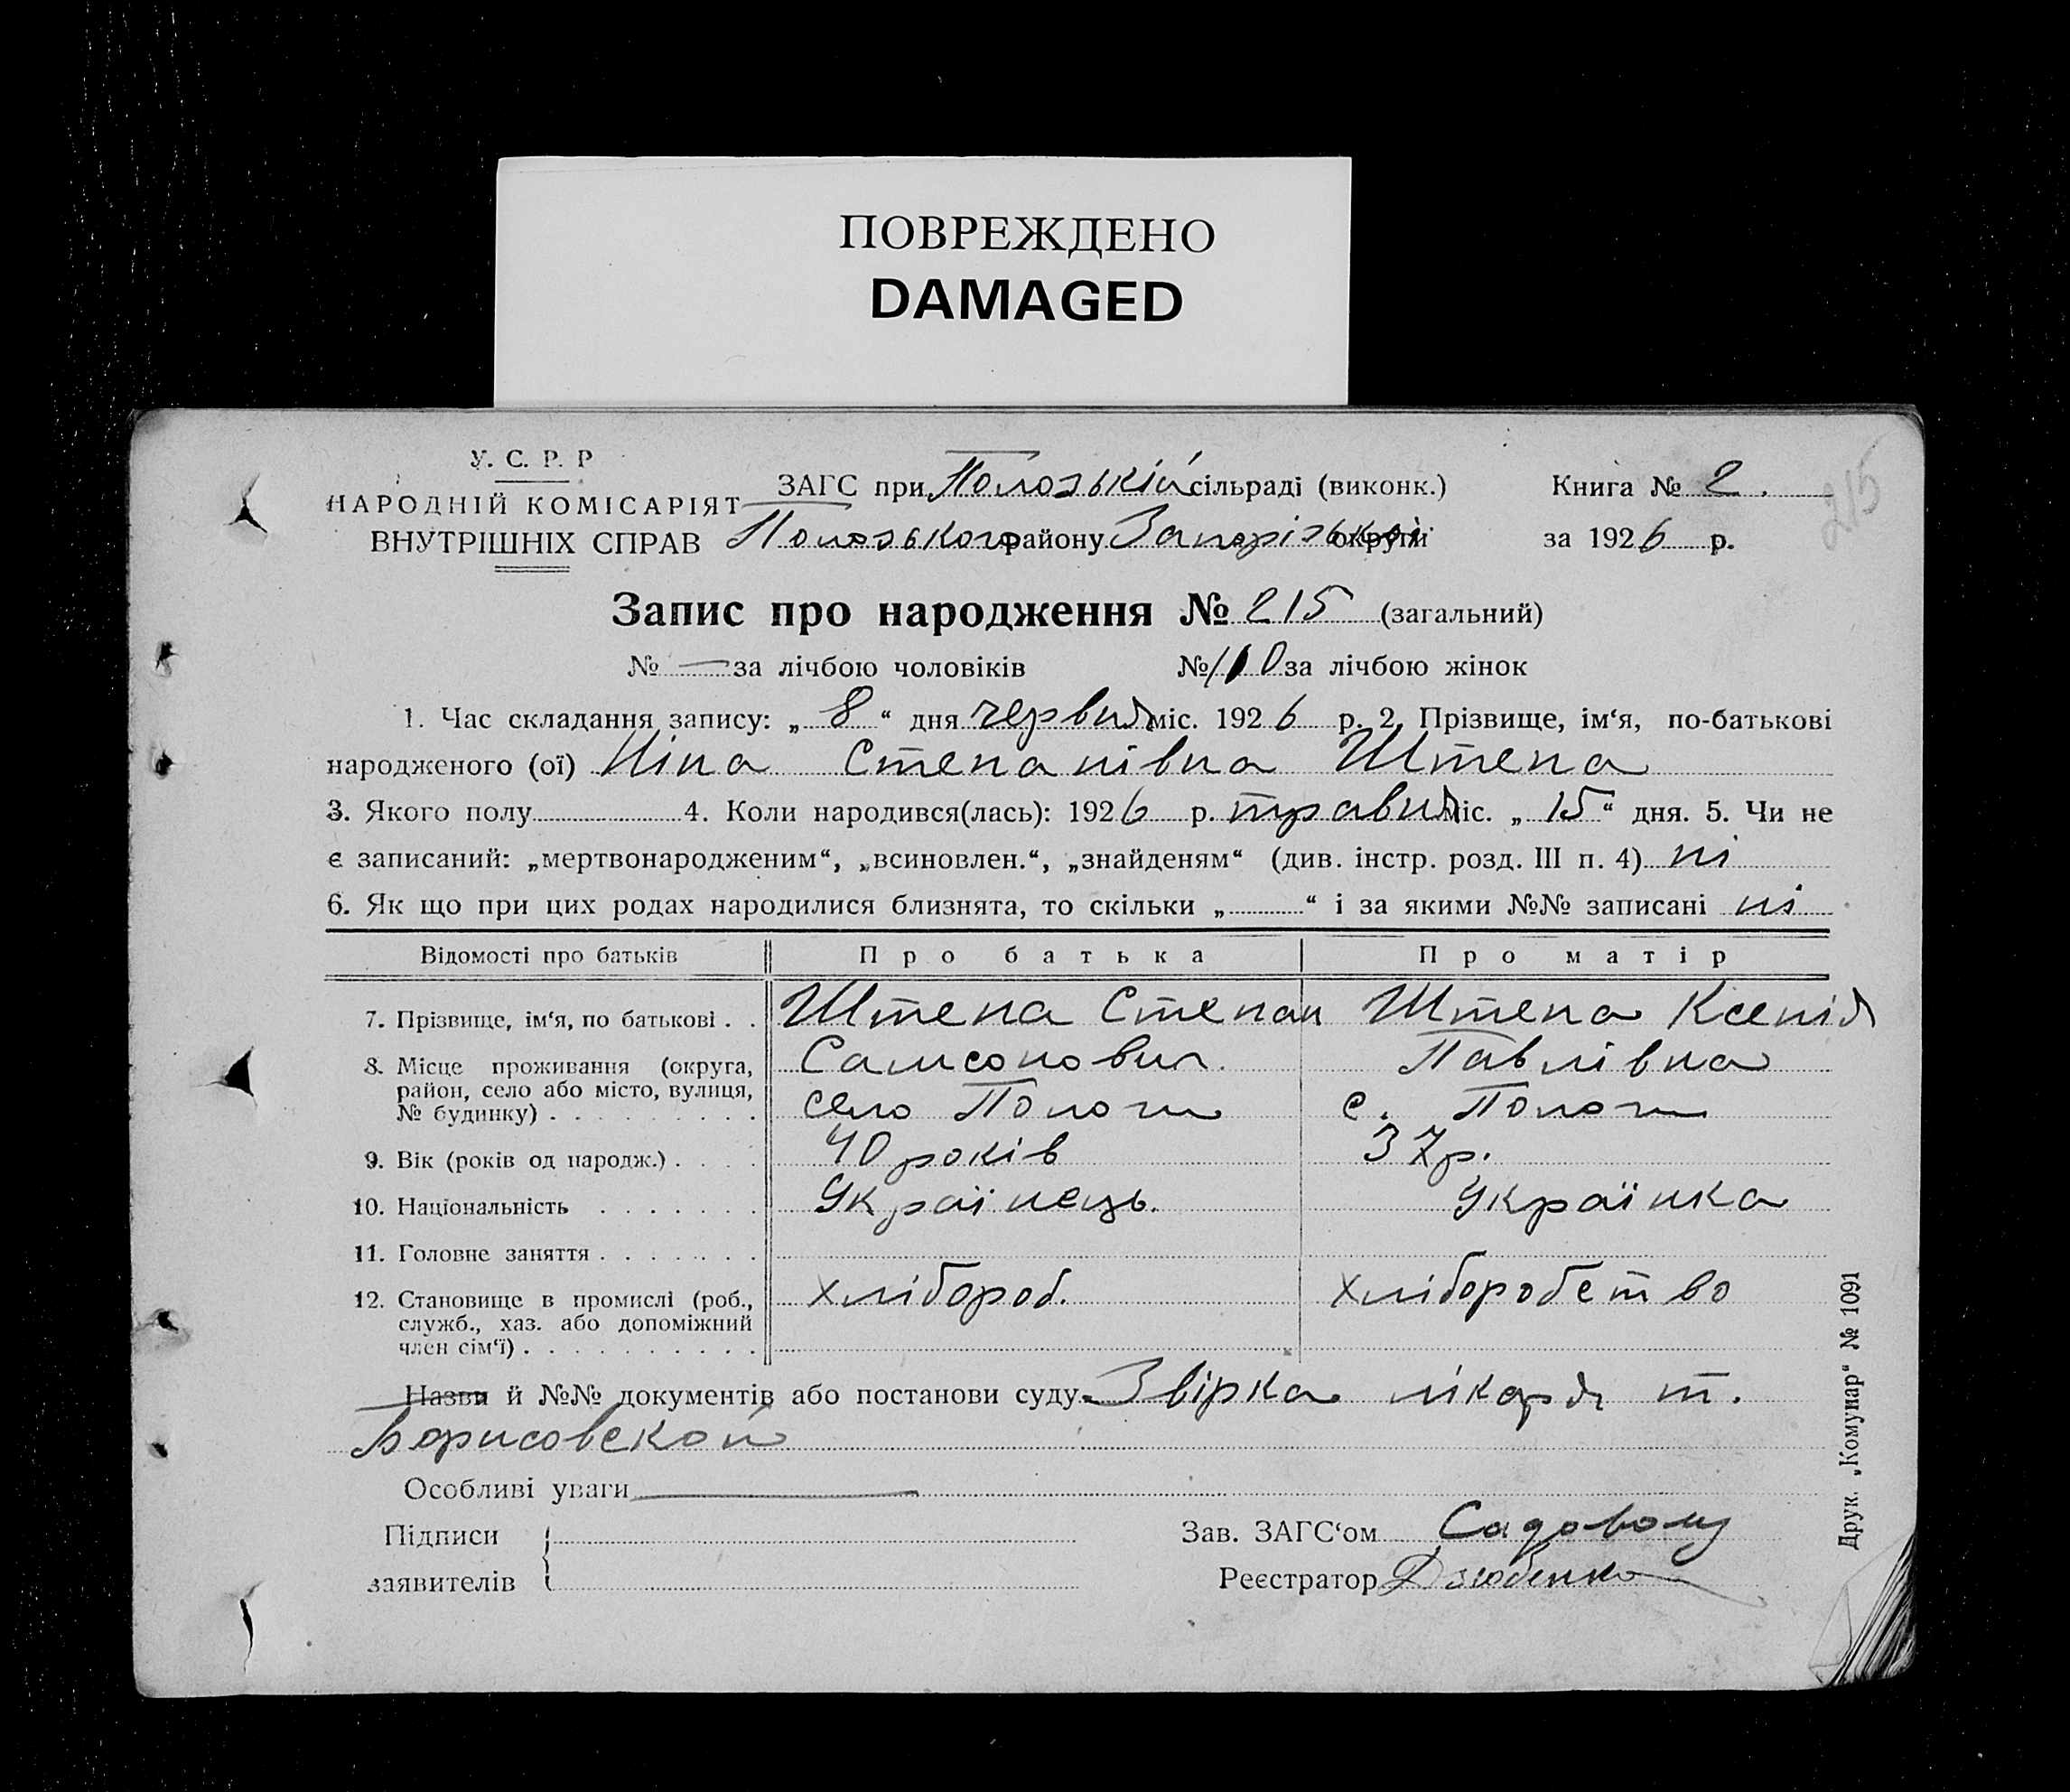 ПОВРЕЖДЕНО
DAMAGED
У. С. Р. Р
НАРОДНІЙ КОМІСАРІЯТ
ВНУТРІШНІХ СПРАВ
ЗАГС при Пологзькій сільраді (виконк.)
Пологзького району Запорізької округи
Книга № 2.
за 1926 р.
215
Запис про народження № 215 (загальний)
№ — за лічбою чоловіків № 110 за лічбою жінок
1. Час складання запису: „ 8 “ дня червня міс. 1926 р. 2. Прізвище, ім‘я, по-батькові
народженого (ої) Ніна Степанівна Штепа
3. Якого полу 4. Коли народився(лась): 1926 р. травня міс. „ 15 “ дня. 5. Чи не
є записаний: „мертвонародженим“, „всиновлен.“, „знайденям“ (див. інстр. розд. III п. 4) ні
6. Як що при цих родах народилися близнята, то скільки „ “ і за якими №№ записані ні
Відомості про батьків Про батька Про матір
7. Прізвище, ім‘я, по батькові . . Штепа Степан Штепа Ксенія
8. Місце проживання (округа, Самсонович. Павлівна
район, село або місто, вулиця,
№ будинку) село Пологи с. Пологи
9. Вік (років од народж.) 40 років 37 р.
10. Національність Українець. Українка
11. Головне заняття
12. Становище в промислі (роб., хлібороб. хліборобство
служб., хаз. або допоміжний
член сім‘ї)
Назви й №№ документів або постанови суду Звірка лікаря т.
Борисовской
Особливі уваги
Підписи
заявителів
Зав. ЗАГС‘ом Садовому
Реєстратор Дзюбенко
Друк. „Комунар“ № 1091